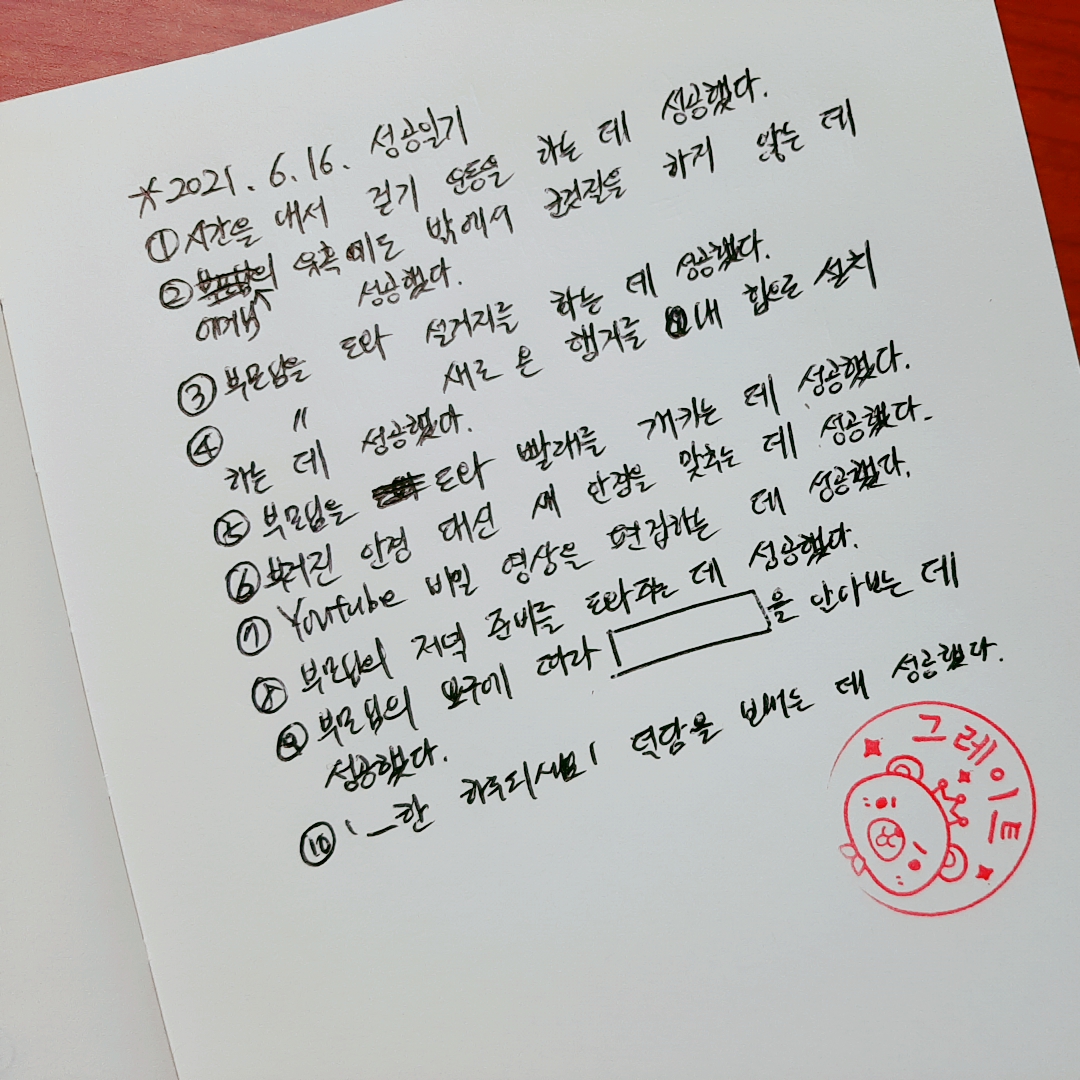 *2021. 6. 16. 성공일기
① 시간을 내서 걷기 운동을 하는 데 성공했다.
② 의 유혹에도 밖에서 군것질을 하지 않는 데
성공했다.
③ 부모님을 도와 설거지를 하는 데 성공했다.
④ 〃 새로 온 행거를 내 힘으로 설치
하는 데 성공했다.
⑤ 부모님을 도와 빨래를 개키는 데 성공했다.
⑥ 부러진 안경 대신 새 안경을 맞추는 데 성공했다.
⑦ Youtube 비밀 영상을 편집하는 데 성공했다.
⑧ 부모님의 저녁 준비를 도와주는 데 성공했다.
⑨ 부모님의 요구에 따라 을 알아보는 데
성공했다.
⑩ '_한 하루되세요' 덕담을 보내는 데 성공했다.
그레이트